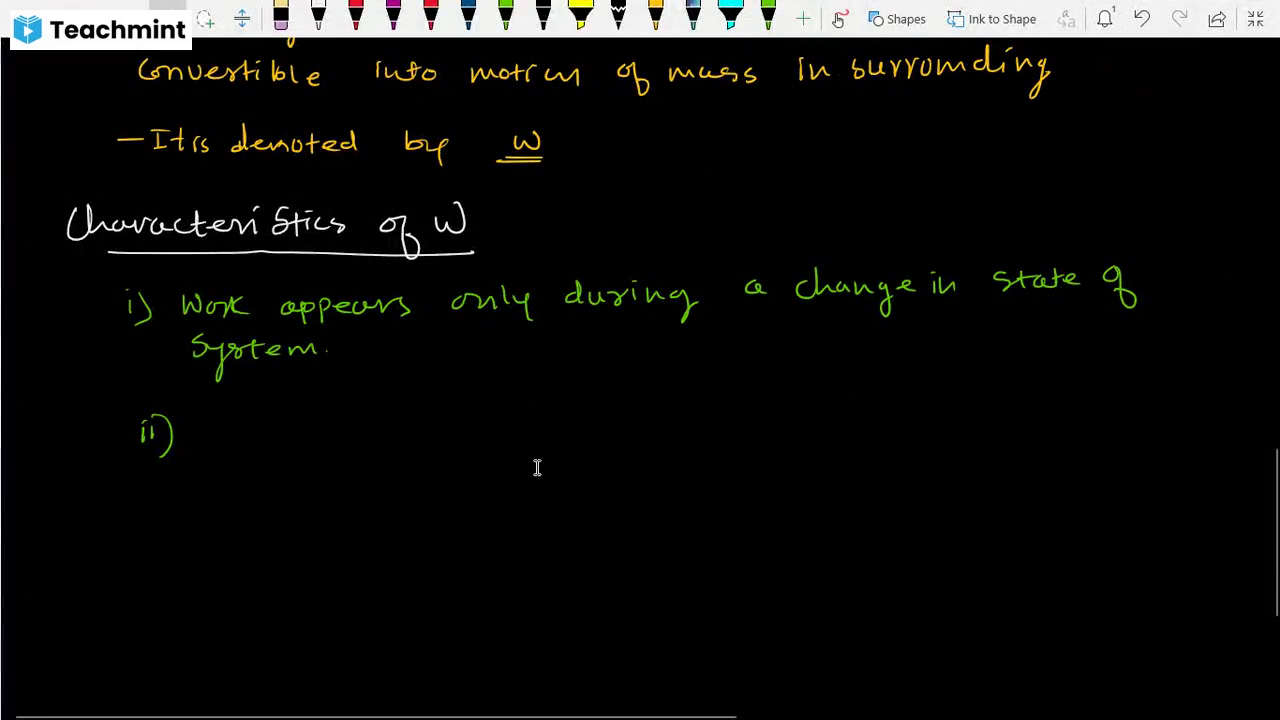 Teachmint
Shapes
Ink to Shape
Convertible into motion of mass in surrounding
- It is denoted by W
Characteristics of W
i) Work appears only during a change in state of
System.
ii)